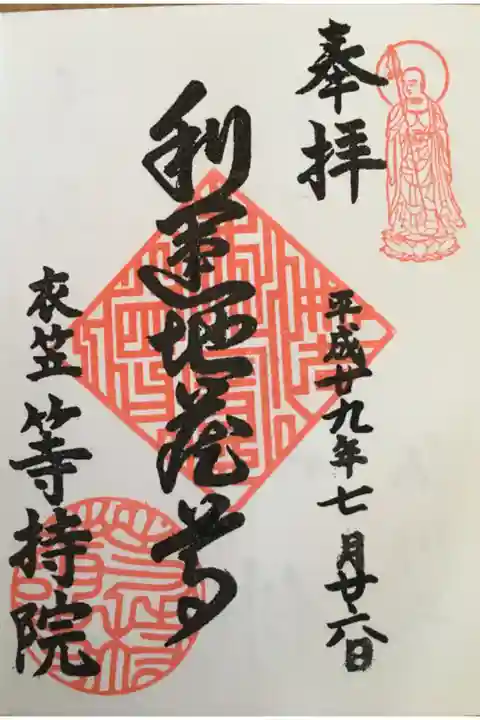 奉拝
平成廿九年七月廿六日
利運地蔵尊
衣笠 等持院